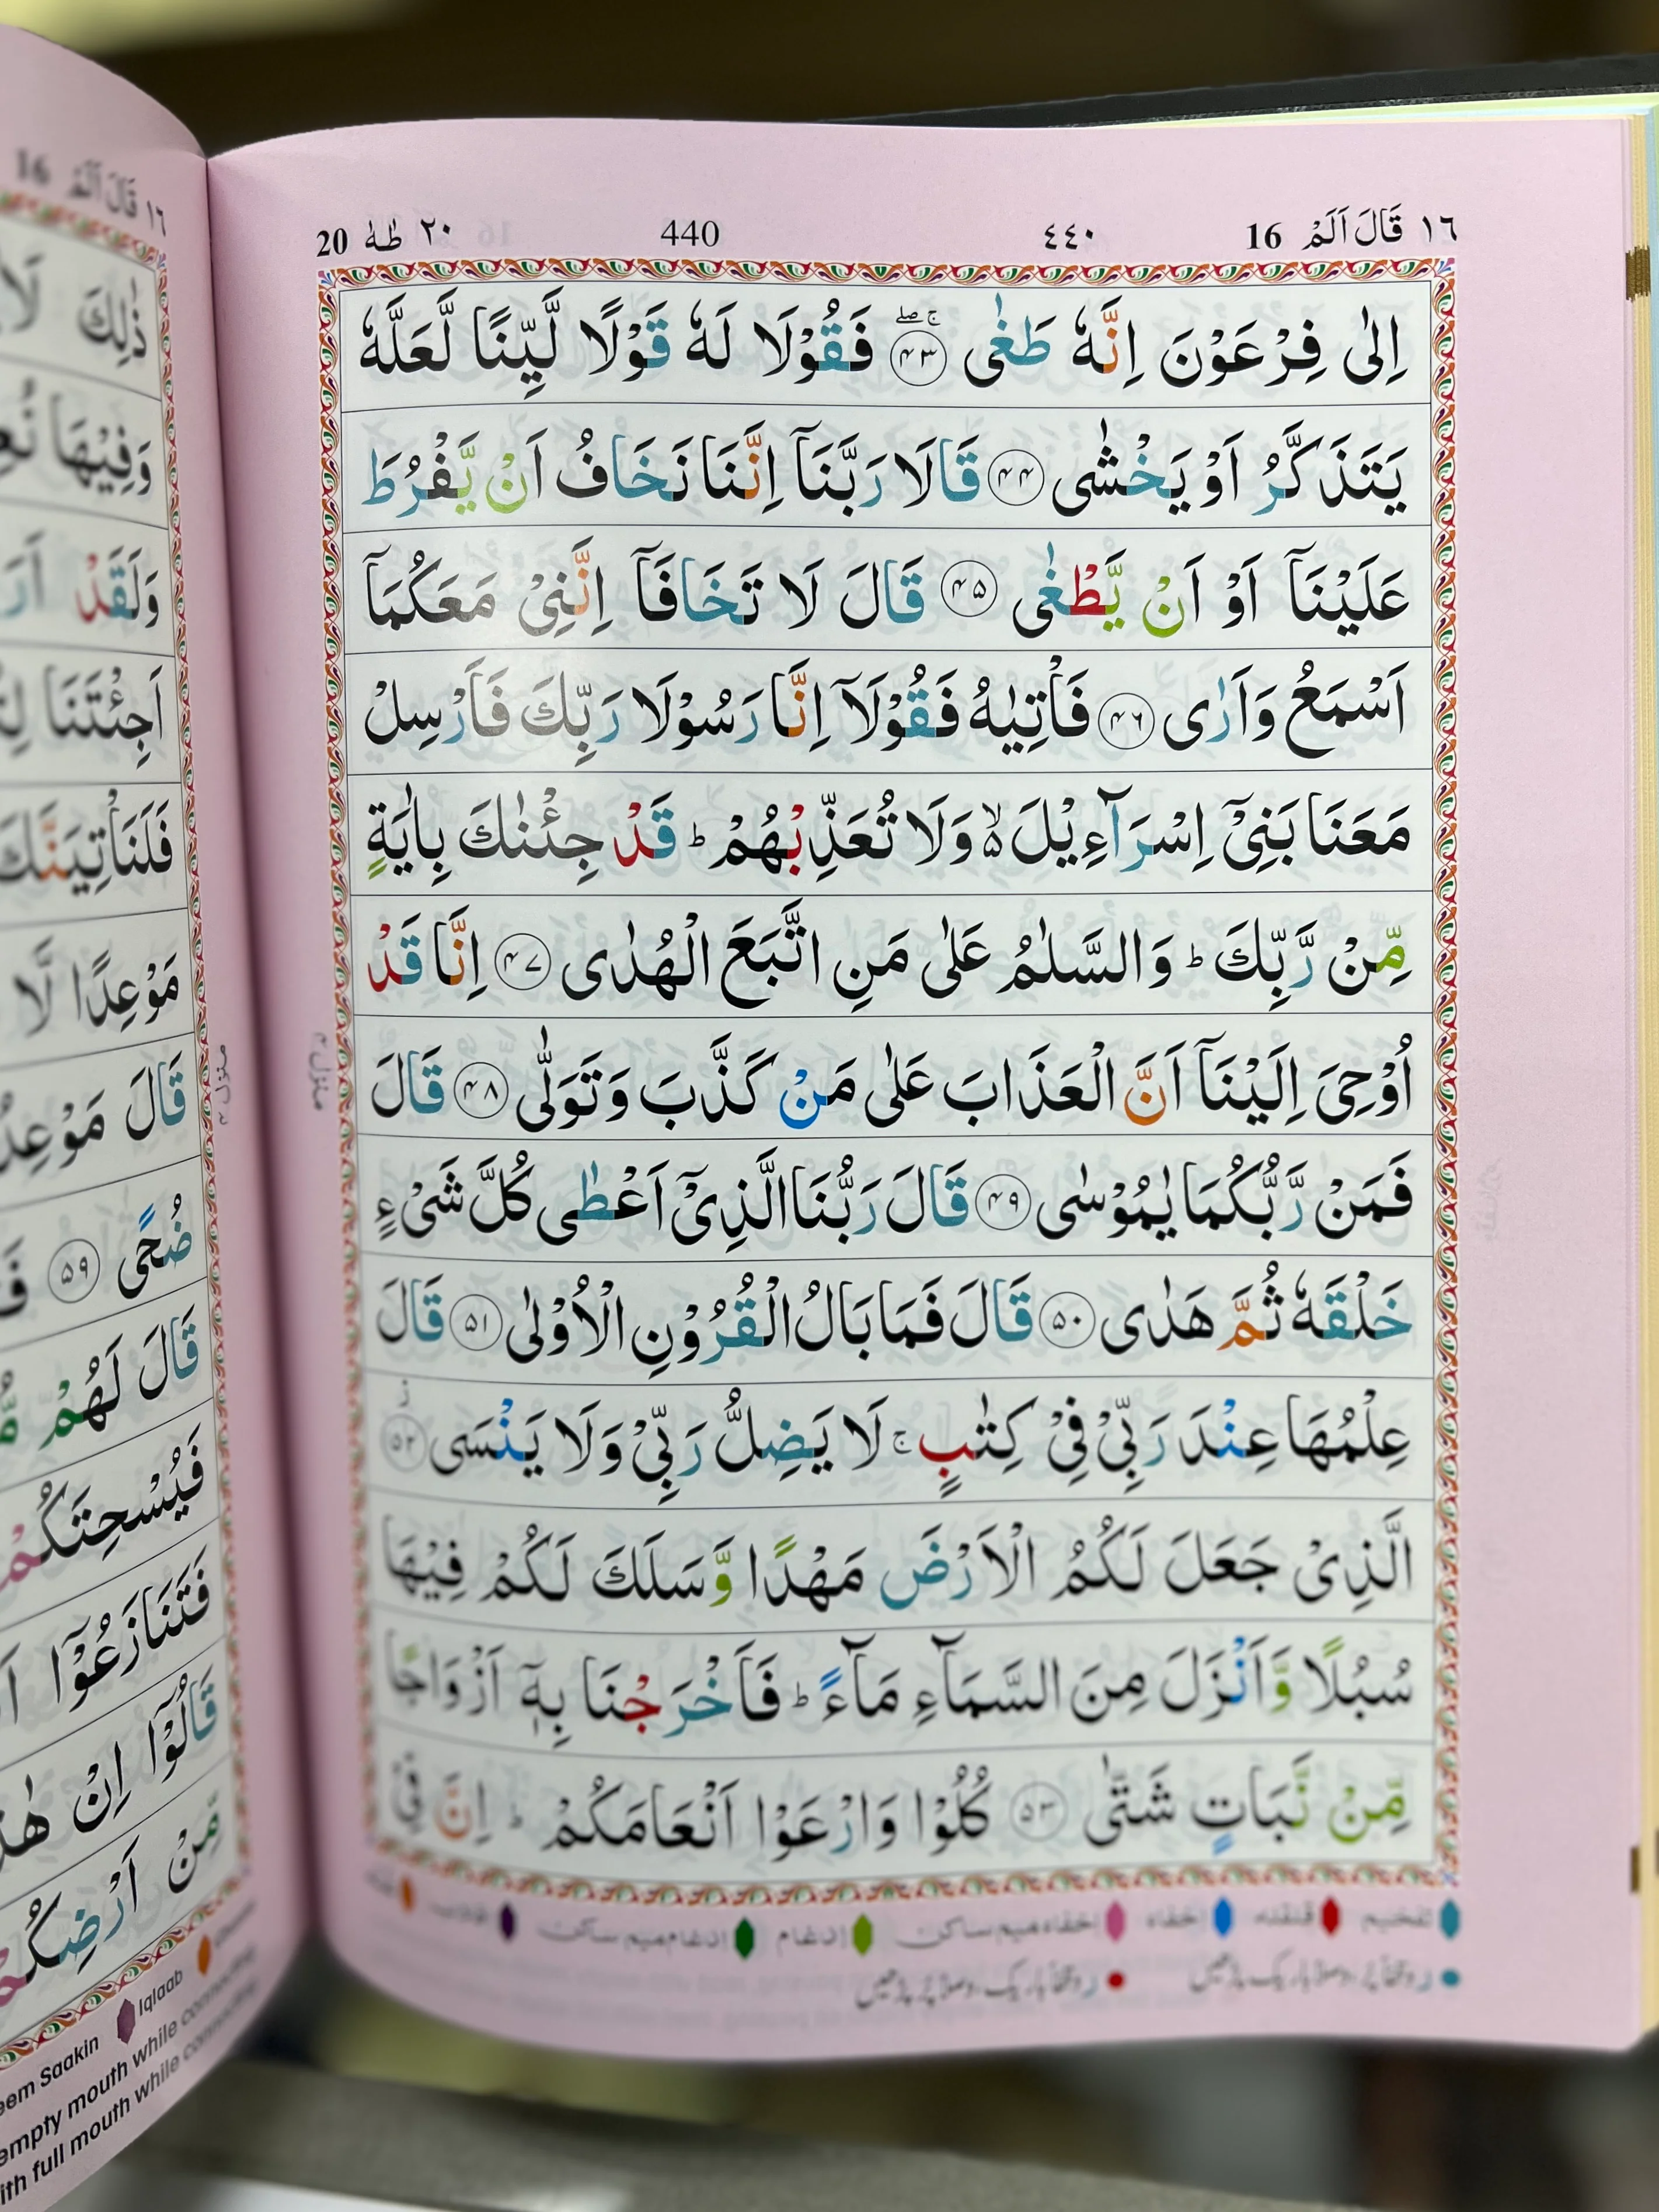 ١٦ قَالَ اَلَمْ 16 ٤٤٠ 440 ٢٠ طٰهٰ 20
اِلٰى فِرْعَوْنَ اِنَّهٗ طَغٰى ﴿۴۳﴾ۚۖ فَقُوْلَا لَهٗ قَوْلًا لَّيِّنًا لَّعَلَّهٗ
يَتَذَكَّرُ اَوْ يَخْشٰى ﴿۴۴﴾ قَالَا رَبَّنَاۤ اِنَّنَا نَخَافُ اَنْ يَّفْرُطَ
عَلَيْنَاۤ اَوْ اَنْ يَّطْغٰى ﴿۴۵﴾ قَالَ لَا تَخَافَاۤ اِنَّنِيْ مَعَكُمَاۤ
اَسْمَعُ وَاَرٰى ﴿۴۶﴾ فَاْتِيٰهُ فَقُوْلَاۤ اِنَّا رَسُوْلَا رَبِّكَ فَاَرْسِلْ
مَعَنَا بَنِيْۤ اِسْرَآءِيْلَ ۙ۬ وَلَا تُعَذِّبْهُمْ ؕ قَدْ جِئْنٰكَ بِاٰيَةٍ
مِّنْ رَّبِّكَ ؕ وَالسَّلٰمُ عَلٰى مَنِ اتَّبَعَ الْهُدٰى ﴿۴۷﴾ اِنَّا قَدْ
اُوْحِيَ اِلَيْنَاۤ اَنَّ الْعَذَابَ عَلٰى مَنْ كَذَّبَ وَتَوَلّٰى ﴿۴۸﴾ قَالَ
فَمَنْ رَّبُّكُمَا يٰمُوْسٰى ﴿۴۹﴾ قَالَ رَبُّنَا الَّذِيْۤ اَعْطٰى كُلَّ شَيْءٍ
خَلْقَهٗ ثُمَّ هَدٰى ﴿۵۰﴾ قَالَ فَمَا بَالُ الْقُرُوْنِ الْاُوْلٰى ﴿۵۱﴾ قَالَ
عِلْمُهَا عِنْدَ رَبِّيْ فِيْ كِتٰبٍ ۚ لَا يَضِلُّ رَبِّيْ وَلَا يَنْسَى ﴿۵۲﴾ز
الَّذِيْ جَعَلَ لَكُمُ الْاَرْضَ مَهْدًا وَّسَلَكَ لَكُمْ فِيْهَا
سُبُلًا وَّاَنْزَلَ مِنَ السَّمَآءِ مَآءً ؕ فَاَخْرَجْنَا بِهٖۤ اَزْوَاجًا
مِّنْ نَّبَاتٍ شَتّٰى ﴿۵۳﴾ كُلُوْا وَارْعَوْا اَنْعَامَكُمْ ؕ اِنَّ فِيْ
تفخيم قلقله إخفاء إخفاء ميم ساكن إدغام إدغام ميم ساكن
منزل ۴
١٦ قَالَ اَلَمْ 16
ذٰلِكَ
وَفِيْهَا
وَلَقَدْ
اَجِئْتَنَا
فَلَنَاْتِيَنَّكَ
مَوْعِدًا لَّا
قَالَ
ضُحًى ﴿۵۹﴾
قَالَ لَهُمْ
فَيُسْحِتَكُمْ
فَتَنَازَعُوْۤا
قَالُوْۤا اِنْ
مِّنْ اَرْضِكُمْ
منزل ۴
Saakin Iqlaab
empty mouth while
with full mouth while